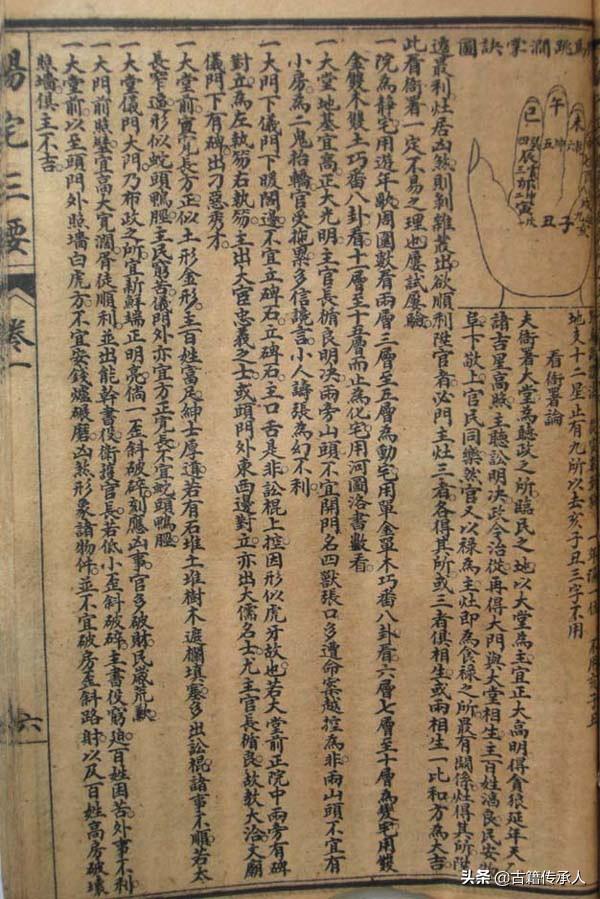 馬跳澗掌訣圖
午
未
巳
五
丑
子
寅
地支十二星止有九所以去亥子丑三字不用
看衙署論
夫衙署大堂為聽政之所臨民之地以大堂為主宜正大高明得貪狼延年天
諸吉星高照主聽訟明决政令治從再得大門與大堂相生主百姓漓良民安物
阜下敬上官民同樂然官又以禄為主灶即為食禄之所最有關係灶得其所陞
遷最利灶居凶煞則剝雜叢出欲順利陞官者必門主灶三者各得其所或三者俱相生或兩相生一比和方為大吉
此看衙署一定不易之理也屢試屢驗
一院為靜宅用遊年歌周圍數看兩層三層至五層為動宅用單金單木巧番八卦看六層七層至十層為變宅用雙
金雙木雙土巧番八卦看十一層至十五層而止為化宅用河圖洛書數看
一大堂地基宜高正大光明主官長循良明决兩旁山頭不宜開門名四獸張口多遭命案越控為非兩山頭不宜有
小房為二鬼抬轎官受拖累多信讒言小人譸張為幻不利
一大門下儀門下暖閣邊不宜立碑石立碑石主口舌是非訟棍上控因形似虎牙故也若大堂前正院中兩旁有碑
對立為左執笏右執笏主出大宦忠義之士或頭門外東西邊對立亦出大儒名士尤主官長循良故教大治文廟
儀門下有碑出刁惡秀才
一大堂前宜寬長方正似土形金形主百姓富足紳士厚道若有石堆土堆樹木遮欄填塞多出訟棍諸事不順若太
長窄遠形似蛇頭鴨脛主民窮苦儀門外亦宜方正寬長不宜蛇頭鴨脛
一大堂儀門大門乃布政之所宜新鮮端正明亮倘一歪斜破碎刻應凶事官多破財民歲荒歉
一大門前照壁宜高大寬濶胥徒順利並出能幹書役衛護官長若低小歪斜破碎主書役窮廹百姓困苦外事不利
一大堂前以至頭門外照墻白虎方不宜安錢爐碾磨凶煞形象諸物件並不宜破房歪斜路射以及百姓高房破壞
照墻俱主不吉
陽宅三要
卷一
六
头条 @古籍传承人